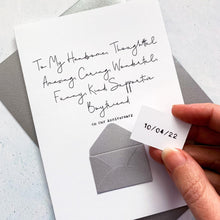 To My Handsome, Thoughtful
Amazing Caring Wonderful,
Funny Kind Supportive
Boyfriend
on our anniversary
10/04/22